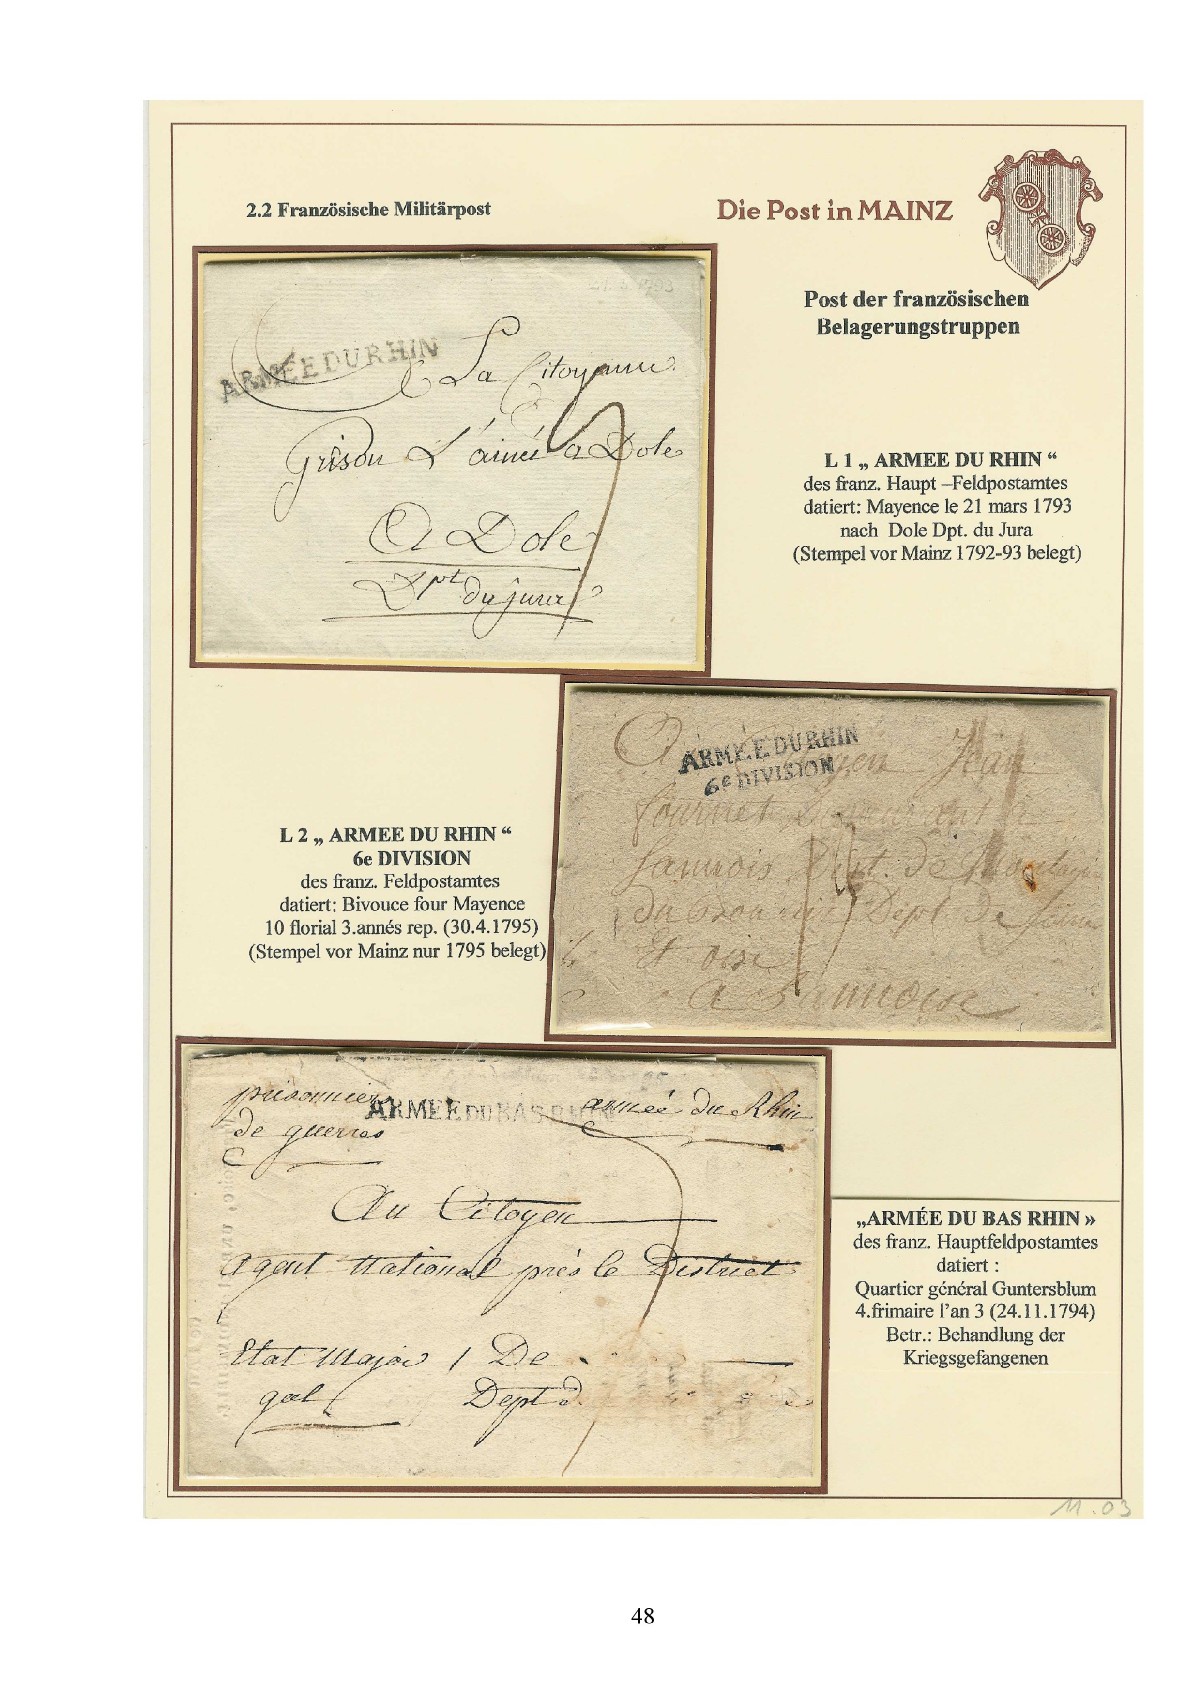 2.2 Französische Militärpost
Die Post in MAINZ
Post der französischen
Belagerungstruppen
ARMÉE DU RHIN
A La Citoyenne
Grison L'ainée a Dole
A Dole
Dpt du jura
L 1 „ ARMEE DU RHIN “
des franz. Haupt –Feldpostamtes
datiert: Mayence le 21 mars 1793
nach Dole Dpt. du Jura
(Stempel vor Mainz 1792-93 belegt)
ARMÉE DU RHIN
6e DIVISION
A
Jean
Dept de
et oise
A
L 2 „ ARMEE DU RHIN “
6e DIVISION
des franz. Feldpostamtes
datiert: Bivouce four Mayence
10 florial 3.annés rep. (30.4.1795)
(Stempel vor Mainz nur 1795 belegt)
prisonnier
de guerres
ARMÉE DU BAS RHIN
armée du Rhin
Au Citoyen
agent National près le District
Etat Major / De
gal Dept d
„ARMÉE DU BAS RHIN »
des franz. Hauptfeldpostamtes
datiert :
Quartier général Guntersblum
4.frimaire l’an 3 (24.11.1794)
Betr.: Behandlung der
Kriegsgefangenen
11.03
48